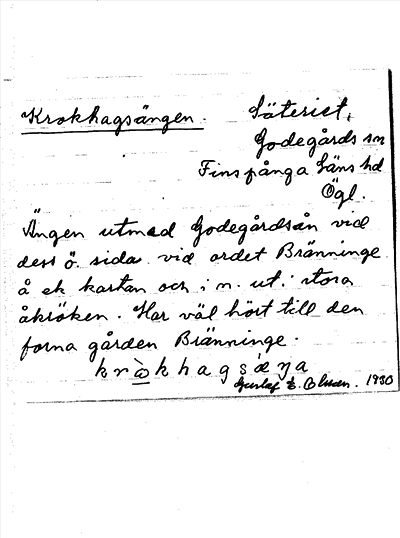 Krokhagsängen. Säteriet,
Godegårds sn
Finspånga Läns hd
Ögl.
Ängen utmed Godegårdsån vid
dess ö. sida vid ordet Bränninge
å ek kartan och i n. ut. i stora
åkröken. Har väl hört till den
forna gården Bränninge.
kròkhagsǽŋa
Gustaf E. Olsson. 1930